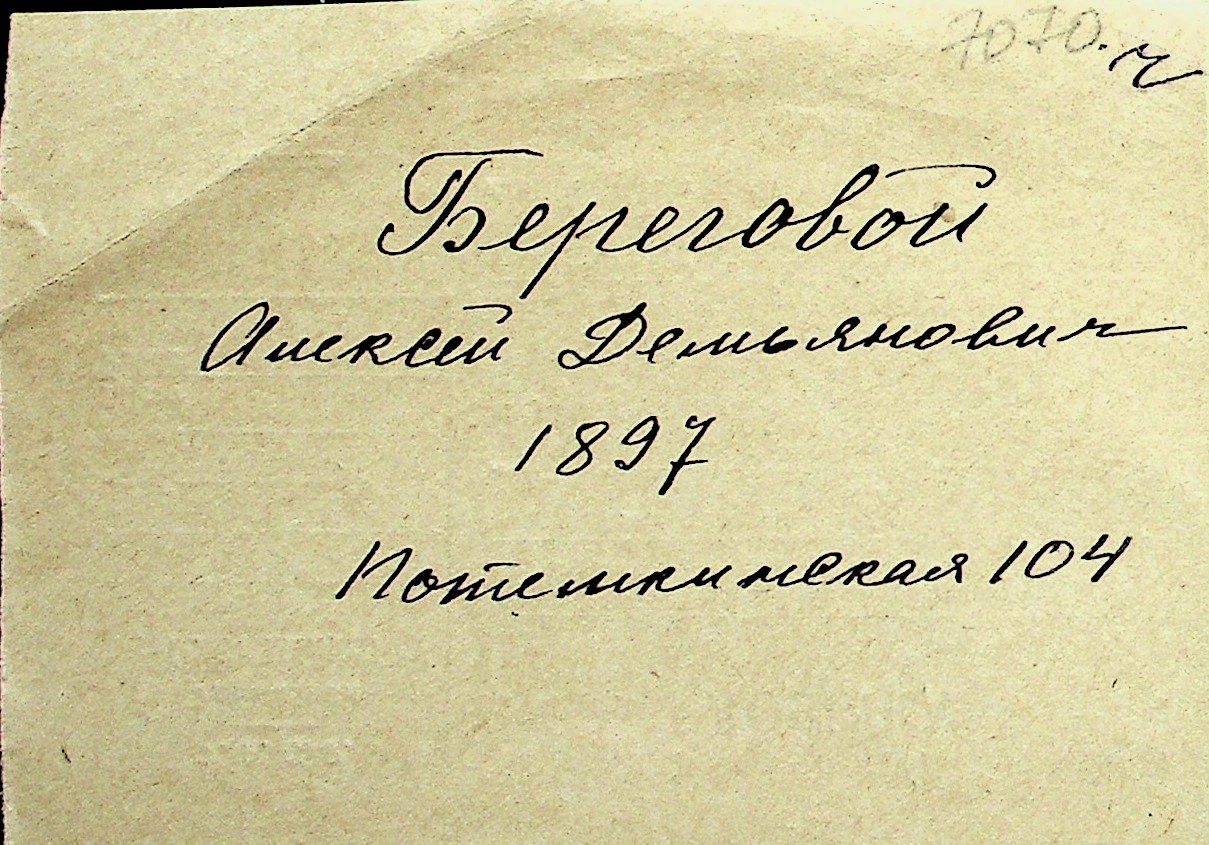 7070. ч
Береговой
Алексей Демьянович
1897
Потемкинская 104